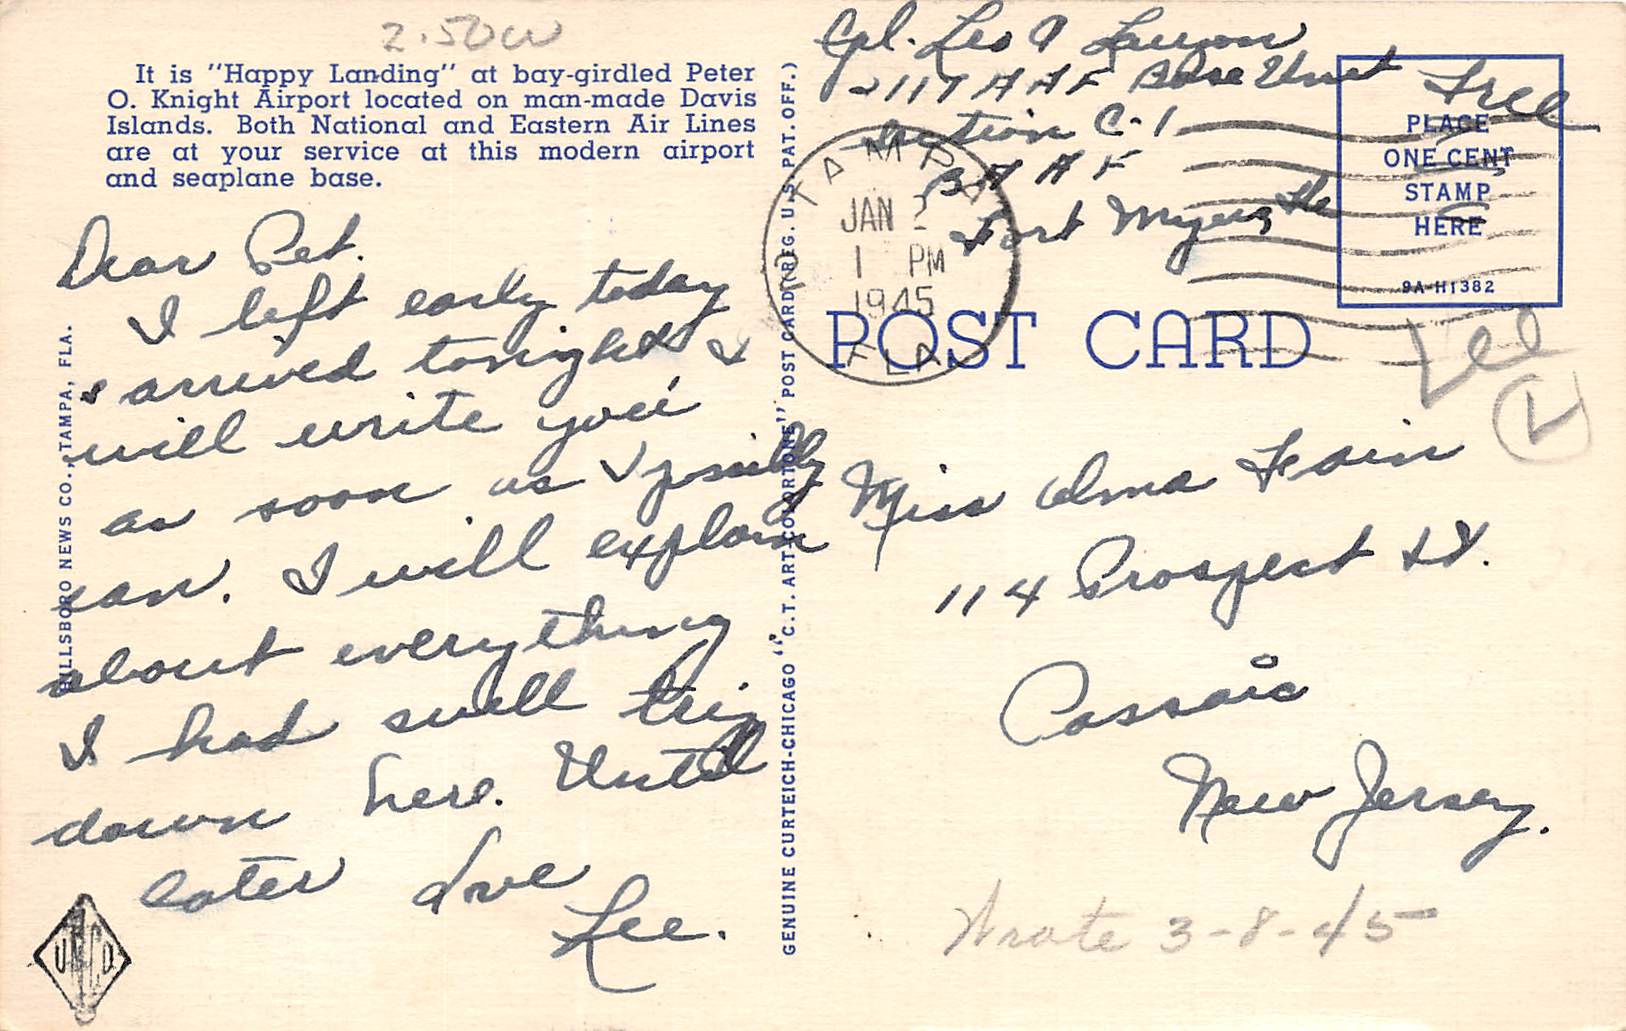 2.50
It is "Happy Landing" at bay-girdled Peter
O. Knight Airport located on man-made Davis
Islands. Both National and Eastern Air Lines
are at your service at this modern airport
and seaplane base.
Cpl. Leo A
2117 AAF Base Unit
Section C-1
BAAF
Fort Myers Fla
Free
PLACE
ONE CENT
STAMP
HERE
9A-H1382
TAMPA
JAN 2
1 PM
1945
FLA
POST CARD
Lee
Dear Pet.
I left early today
& arrived tonight &
will write you
as soon as I possibly
can. I will explain
about everything
I had swell trip
down here. Until
later Love
Lee.
Miss Alma
114 Prospect St.
Passaic
New Jersey.
Wrote 3-8-45
HILLSBORO NEWS CO., TAMPA, FLA.
GENUINE CURTEICH-CHICAGO "C.T. ART-COLORTONE" POST CARD (REG. U.S. PAT. OFF.)